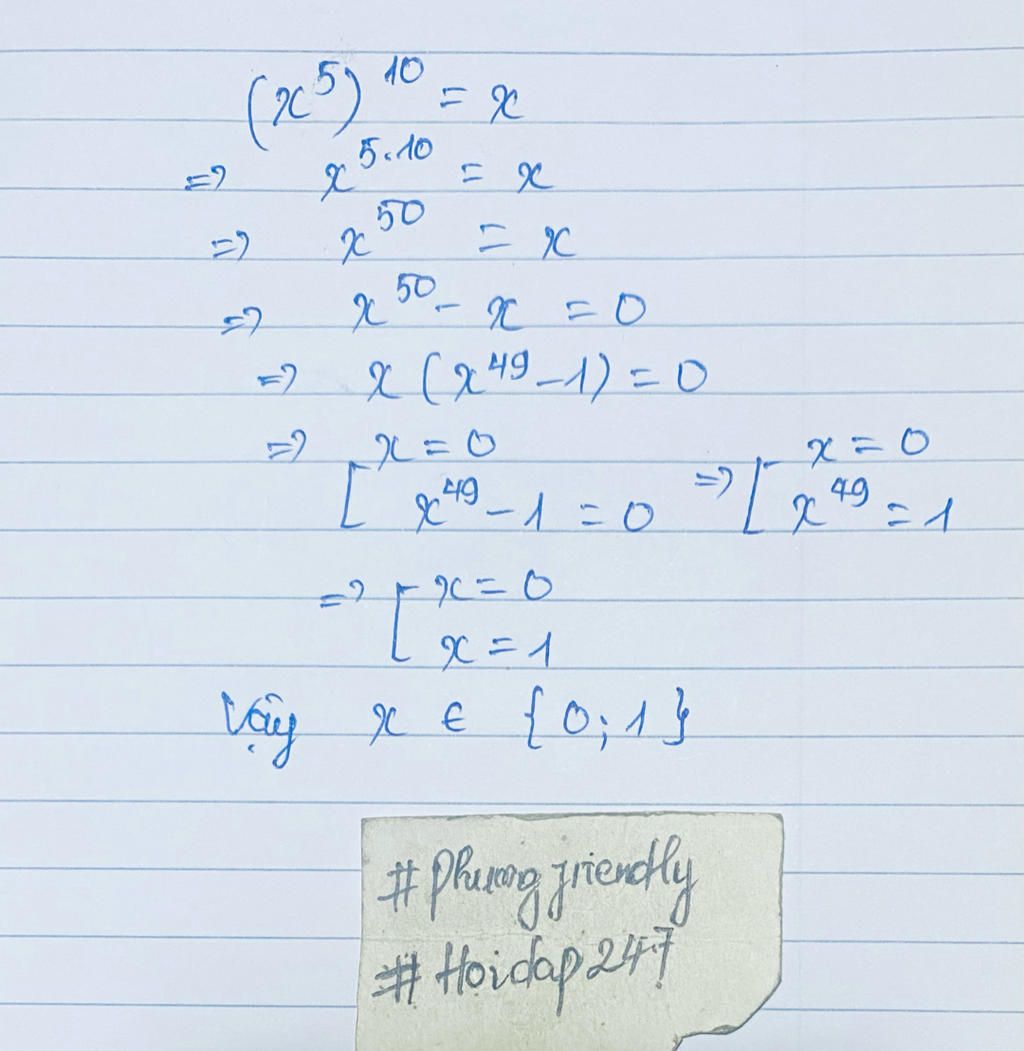 (x⁵)¹⁰ = x
=> x⁵·¹⁰ = x
=> x⁵⁰ = x
=> x⁵⁰ - x = 0
=> x (x⁴⁹ - 1) = 0
=> [ x = 0 => [ x = 0
x⁴⁹ - 1 = 0 x⁴⁹ = 1
=> [ x = 0
x = 1
Vậy x ∈ {0; 1}
# Phuong friendly
# Hoidap247